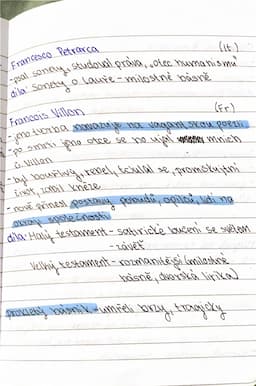 Francesco Petrarca (it)
- psal sonety, studoval práva, „otec humanismu"
díla: Sonety o Lauře - milostné básně
Francois Villon (Fr)
- jeho tvorba navazuje na vagantskou poezii
- po smrti jeho otce se ho ujal mnich
G. Villon
- byl bouřlivý, rebel, toulal se, promoskujtní
život, zabil kněze
- nově přinesl postavy pobudů, opilců, lidi na
okraji společnosti
díla: Malý testament - satirické loučení se světem
- závěť
Velký testament - rozmanitější (milostné
básně, dvorská lirika)
prokletý básník - umřeli brzy, tragicky